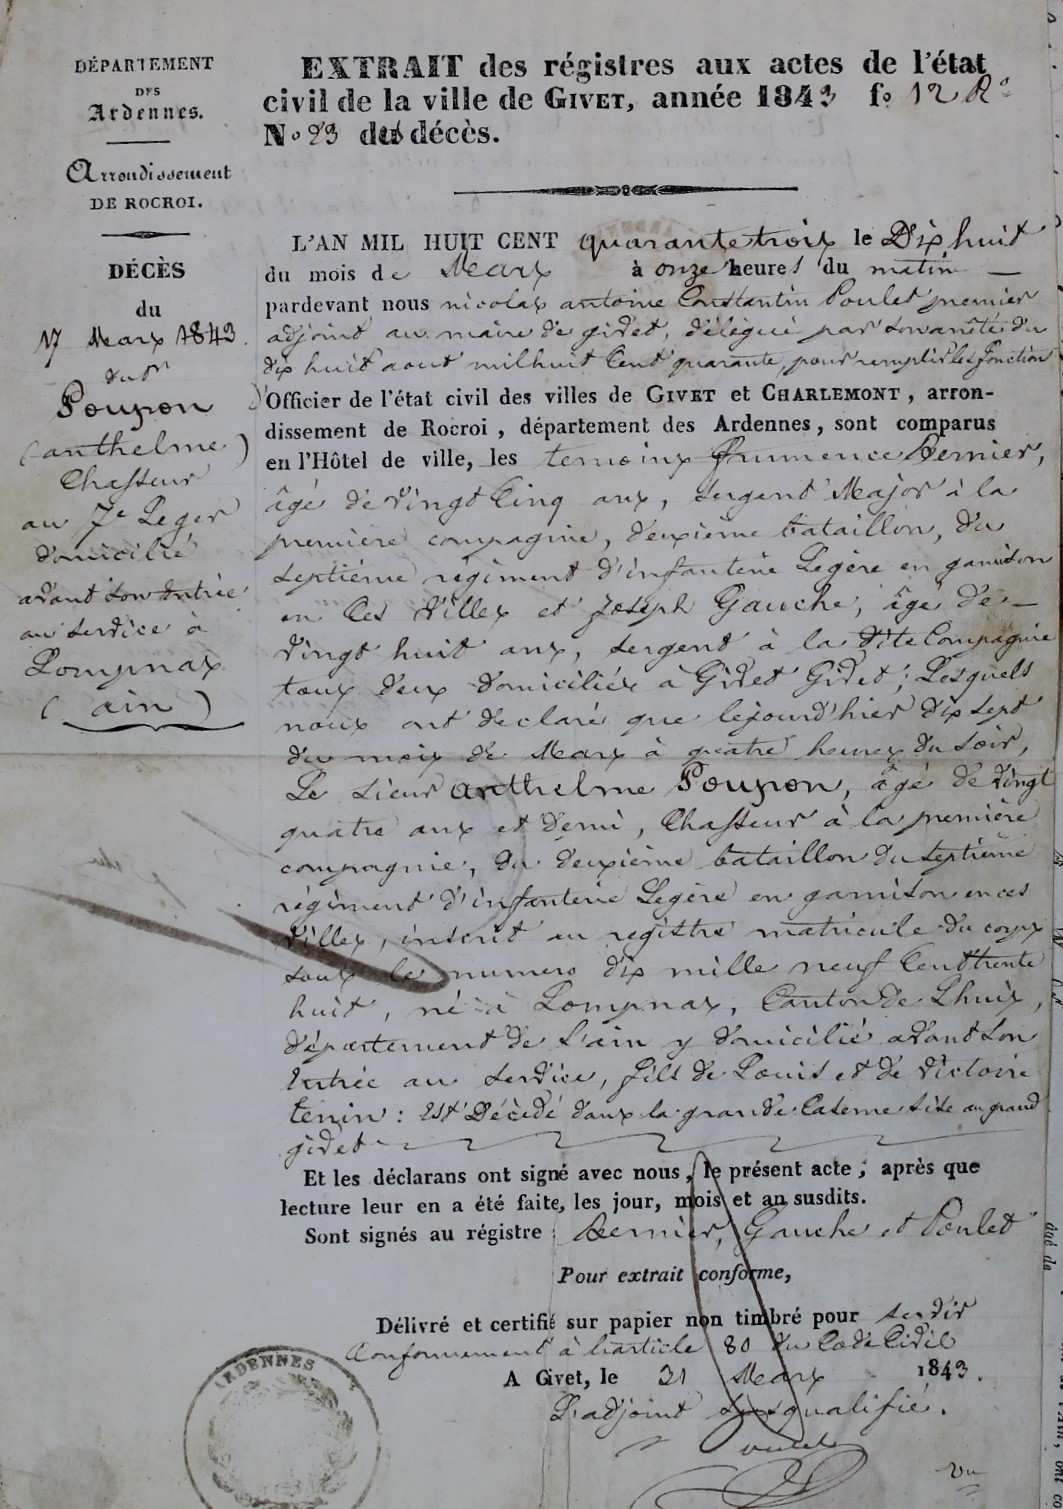 DÉPARTEMENT
DES
Ardennes.
Arrondissement
DE ROCROI.
DÉCÈS
du
17 Marx 1843.
du Sr
Poupon
(anthelme)
Chasseur
au 7e Leger
domicilié
avant son Entrée
au service à
Lompnax
(ain)
EXTRAIT des régistres aux actes de l'état
civil de la ville de GIVET, année 1843 fo 12 Ro
No 23 des décès.
L'AN MIL HUIT CENT quarante troix le Dix huit
du mois de Marx à onze heures du matin —
pardevant nous nicolax antoine Constantin Poulet premier
adjoint au maire de givet, délégué par son arrêté du
dix huit aout mil huit Cent quarante, pour remplir les fonction
D'Officier de l'état civil des villes de GIVET et CHARLEMONT, arron-
dissement de Rocroi, département des Ardennes, sont comparus
en l'Hôtel de ville, les temoinx frumence Bernier,
âgé de vingt Cinq anx, sergent Major à la
première compagnie, deuxième bataillon, du
septième régiment d'infanterie Légère en garnison
en Ces Villex et Joseph Gauche, âgé de —
vingt huit anx, sergent à la dite Compagnie
toux deux domiciliéx à Givet Givet; Lesquels
noux ont declaré que le jourd'hier dix sept
du moix de Marx à quatre heurex du soir,
Le sieur anthelme Poupon, âgé de vingt
quatre anx et demi, Chasseur à la première
compagnie, du deuxième bataillon du septième
régiment d'infanterie Legère en garnison en ces
Villex, inscrit au registre matricule du corpx
soux le numero dix mille neuf Cent trente
huit, né à Lompnax, Canton de Lhuix,
département de l'ain y domicilié avant son
Entrée au service, fils de Louis et de Victoire
tenin : Est Décédé danx la grande Caserne sise au grand
givet
Et les déclarans ont signé avec nous, le présent acte; après que
lecture leur en a été faite, les jour, mois et an susdits.
Sont signés au régistre : Bernier, Gauche et Poulet
Pour extrait conforme,
Délivré et certifié sur papier non timbré pour servir
Conformement à l'article 80 du Code Civil
A Givet, le 21 Marx 1843.
L'adjoint susqualifié.
Poulet
Vu
ARDENNES